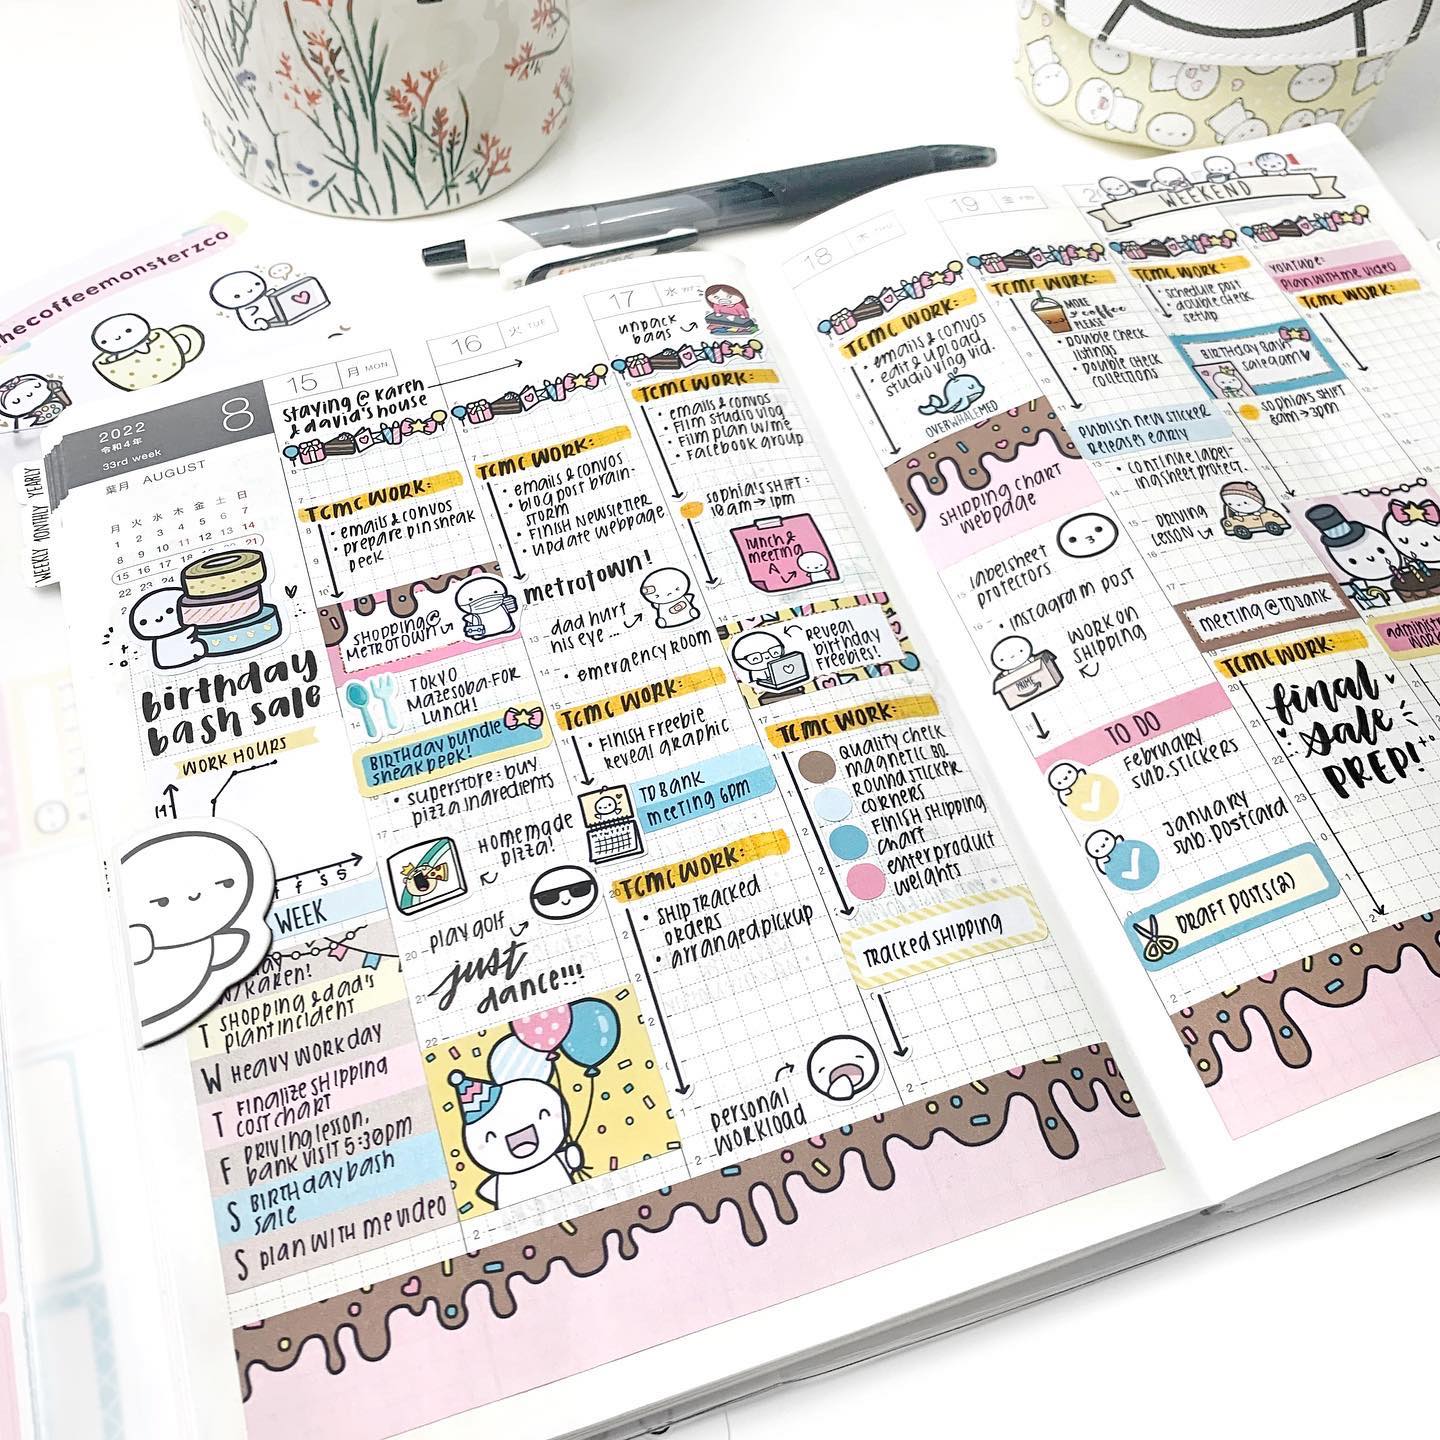 hecoffeemonsterzco
WEEKLY MONTHLY YEARLY
2022
令和4年
33rd week
8
葉月 AUGUST
月 火 水 木 金 土 日
1 2 3 4 5 6 7
8 9 10 11 12 13 14
15
21
22 23 24
birthday
bash sale
WORK HOURS
14
f s s
WEEK
W/ KAREN!
T SHOPPING & DAD'S
PLANT INCIDENT
W HEAVY WORK DAY
T FINALIZE SHIPPING
COST CHART
F DRIVING LESSON,
BANK VISIT 5:30PM
S BIRTHDAY BASH
SALE
S PLAN WITH ME VIDEO
15 月 MON
STAYING @ KAREN
& DAVID'S HOUSE
TCMC WORK:
• EMAILS & CONVOS
• PREPARE PIN SNEAK
PEEK
SHOPPING @
METROTOWN
TOKYO
MAZESOBA FOR
LUNCH!
BIRTHDAY BUNDLE
SNEAK PEEK!
• SUPERSTORE: BUY
PIZZA INGREDIENTS
HOMEMADE
PIZZA!
PLAY GOLF
just
dance!!!
16 火 TUE
TCMC WORK:
• EMAILS & CONVOS
• BLOG POST BRAIN-
STORM
• FINISH NEWSLETTER
• UPDATE WEBPAGE
METROTOWN!
DAD HURT
HIS EYE...
• EMERGENCY ROOM
TCMC WORK:
• FINISH FREEBIE
REVEAL GRAPHIC
TD BANK
MEETING 6PM
TCMC WORK:
• SHIP TRACKED
ORDERS
• ARRANGED PICKUP
17 水
UNPACK
BAGS
TCMC WORK:
• EMAILS & CONVOS
• FILM STUDIO VLOG
• FILM PLAN W/ME
• FACEBOOK GROUP
SOPHIA'S SHIFT:
10AM → 1PM
LUNCH &
MEETING
A
REVEAL
BIRTHDAY
FREEBIES!
TCMC WORK:
QUALITY CHECK
MAGNETIC BD.
ROUND STICKER
CORNERS
FINISH SHIPPING
CHART
ENTER PRODUCT
WEIGHTS
TRACKED SHIPPING
PERSONAL
WORKLOAD
18 木 THU
TCMC WORK:
• EMAILS & CONVOS
• EDIT & UPLOAD
STUDIO VLOG VID.
OVERWHALEMED
SHIPPING CHART
WEBPAGE
LABEL SHEET
PROTECTORS
• INSTAGRAM POST
WORK ON
SHIPPING
PRIME
TO DO
FEBRUARY
SUB. STICKERS
JANUARY
SUB. POSTCARD
DRAFT POSTS (2)
19 金 FRI
TCMC WORK:
MORE
coffee
PLEASE
• DOUBLE CHECK
LISTINGS
• DOUBLE CHECK
COLLECTIONS
PUBLISH NEW STICKER
RELEASES EARLY
• CONTINUE LABEL-
ING SHEET PROTECT.
DRIVING
LESSON
MEETING @ TD BANK
TCMC WORK:
final
sale
PREP!
WEEKEND
TCMC WORK:
• SCHEDULE POST
• DOUBLE CHECK
SETUP
BIRTHDAY BASH
SALE 9AM
SOPHIA'S SHIFT
8AM → 3PM
YOUTUBE:
PLAN WITH ME VIDEO
TCMC WORK: